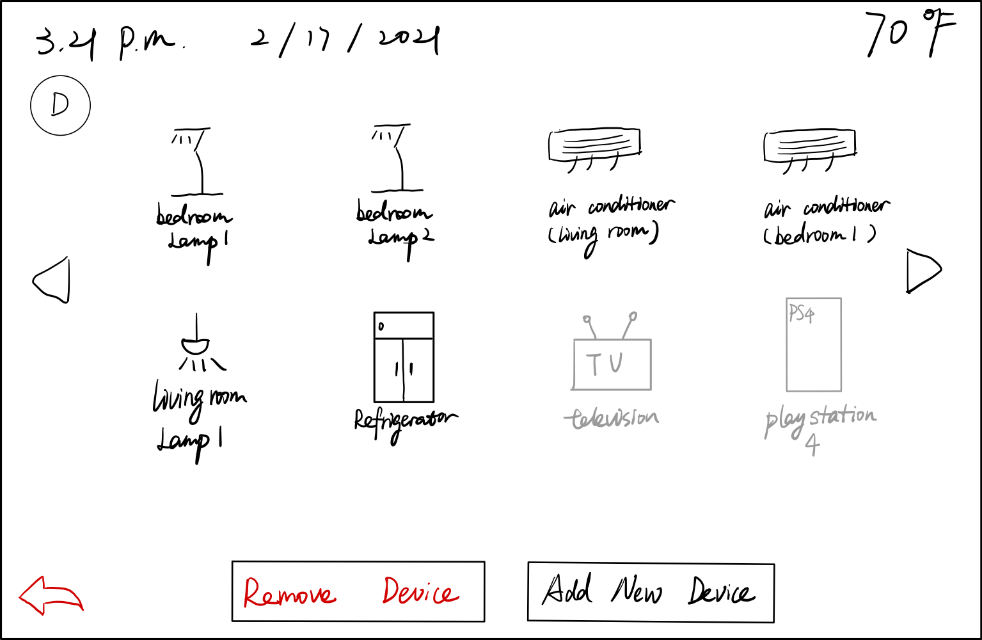 3.21 p.m. 2/17/2021 70°F
D
bedroom Lamp 1
bedroom Lamp 2
air conditioner (living room)
air conditioner (bedroom 1)
Living room Lamp 1
Refrigerator
TV
television
PS4
playstation 4
Remove Device
Add New Device